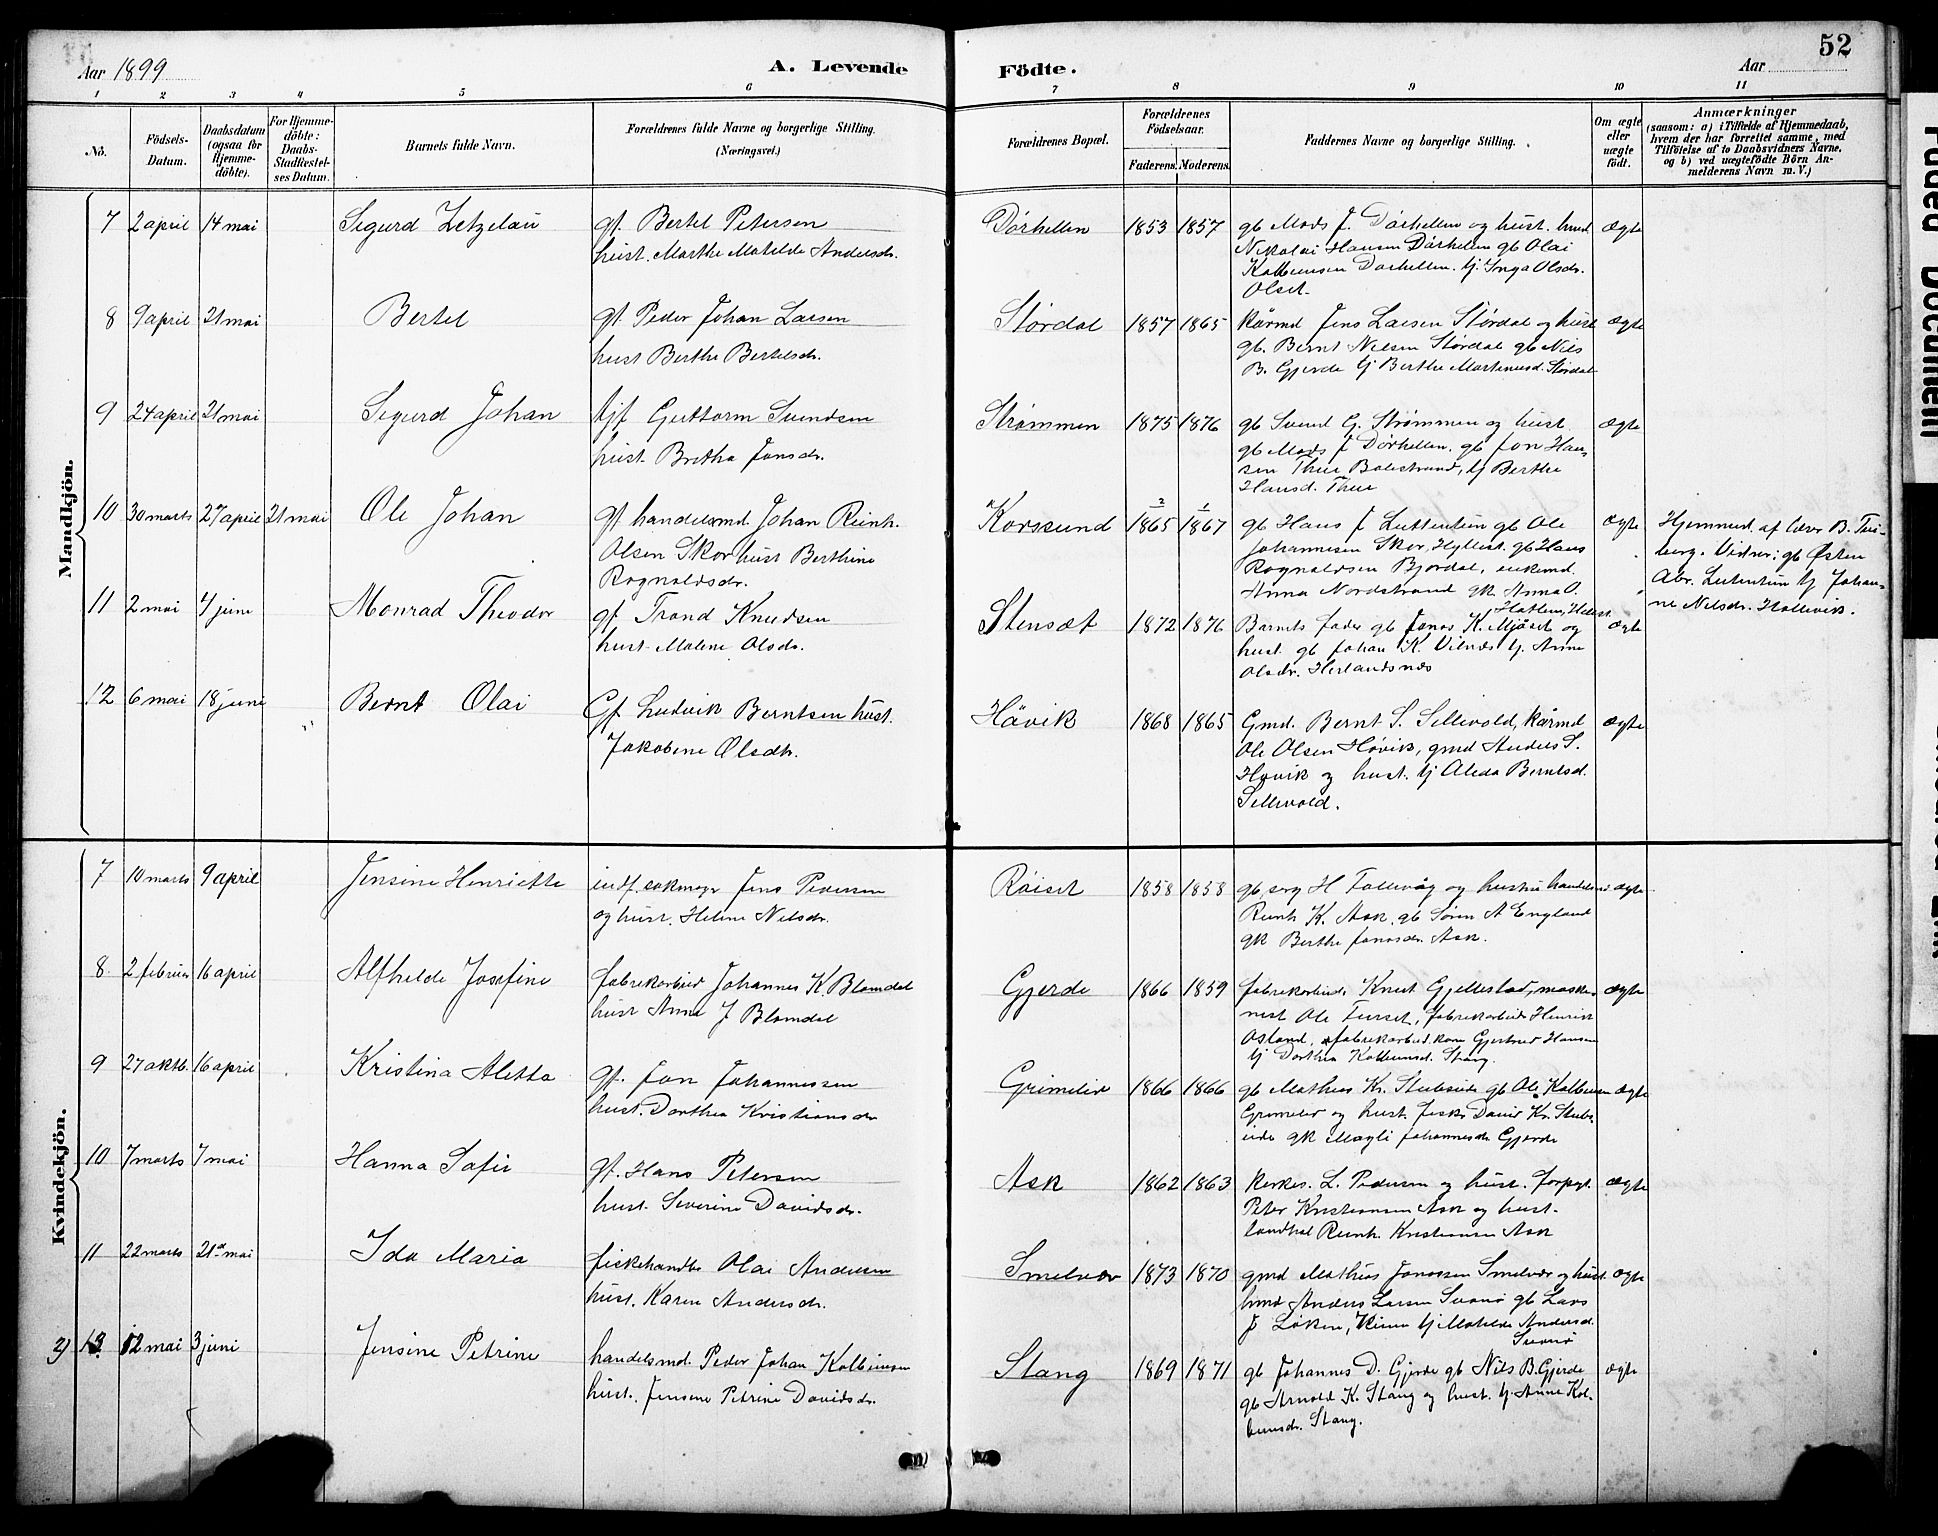 52
Aar 1899
A. Levende
Födte.
Aar
1 2 3 4 5 6 7 8 9 10 11
No.
Födsels-
Datum.
Daabsdatum
(ogsaa for
Hjemme-
döbte).
For Hjemme-
döbte:
Daabs-
Stadfæstel-
ses Datum.
Barnets fulde Navn.
Forældrenes fulde Navne og borgerlige Stilling.
(Næringsvei.)
Forældrenes Bopæl.
Forældrenes
Födselsaar.
Faderens. Moderens.
Faddernes Navne og borgerlige Stilling.
Om ægte
eller
uægte
födt.
Anmærkninger
(saasom: a) i Tilfælde af Hjemmedaab,
hvem der har forrettet samme, med
Tilföielse af to Daabsvidners Navne,
og b) ved uægtefödte Börn An-
melderens Navn m. V.)
Mandkjön.
7 2 april 14 mai Sigurd Zetzelau
gf. Bertel Petersen
hust. Marthe Matilde Andersdr.
Dörhellen 1853 1857
gb Mads J. Dörhellen og hust. hmd
Nikolai Hansen Dörhellen gb Olai
Kolbeinsen Dörhellen. tj. Inga Olsdr.
Olset.
ægte
8 9 april 21 mai Bertel
gf. Peder Johan Larsen
hust Berthe Bertelsdr.
Stördal 1857 1865
kårmd Jens Larsen Stördal og hust
gb. Bernt Nilsen Stördal gb Nils
B. Gjerde tj Berthe Martinusd. Stördal
ægte
9 24 april 21 mai Sigurd Johan
tjf Guttorm Svendsen
hust. Brithe Jonsdr.
Strømmen 1875 1876
gb Svend G. Strømmen og hust.
gb Mads J Dörhellen. gb Jon Han-
sen Thue Balestrand, tj Berthe
Hansd. Thue
ægte
10 30 marts 27 april 21 mai Ole Johan
gf handelsmd. Johan Reinh.
Olsen Skor hust Berthine
Rognaldsdr.
Korssund 1865 1867
gb Hans J Luttentun gb Ole
Johannesen Skor, Hyllest. gb Hans
Rognaldsen Bjordal, enkemd.
Anna Nordstrand gk Anna O.
ægte
Hjemmed. af lærer B. Thi-
berg. Vidner: gb Østen
Abr. Lutentun tj Johan-
ne Nilsdr. Hollevik.
11 2 mai 4 june Monrad Theodor
gf Trond Knudsen
hust. Malene Olsdr.
Stensæt 1872 1876
Barnets fader gb Jonas K. Mjåset og
hust. gb Johan K. Vilnes tj. Anne
Olsdr. Herlandsnæs
ægte
12 6 mai 18 june Bernt Olai
Gf Ludvik Berntsen hust.
Jakobine Olsdtr.
Hävik 1868 1865
Gmd. Bernt S. Sellevold, kårmd
Ole Olsen Hövik, gmd Anders S.
Hövik og hust. tj Aleda Berntsd.
Sellevold.
ægte
Kvindekjön.
7 10 marts 9 april Jensine Henriette
indf. Jens Pedersen
og hust. Helene Nilsdr.
Röiset 1858 1858
gb H Tollevåg og hustru
Reinh K. Ask. gb Sören A England
gk Berthe Jonasdr. Ask.
ægte
8. 2 februar 16 april Alfhelde Josefine
fabrekarbeid Johannes K. Blomdal
hust Anna J Blomdal
Gjerde 1866 1859
fabrekarbeid. Knut Gjellestad, maski-
nist Ole Furset, fabrekarbeid Henrik
Osland, fabrekarbeid. kone Gjertrud Hansen
tj Dorthea Kolbeinsd. Stang.
ægte
9 27 oktb. 16 april Kristina Aletta
gf. Jon Johannessen
hust. Dorthea Kristiansdr
Grimelid 1866 1866
gb Mathias Kr. Stubseide gb Ole Kolbeinsen
Grimelid og hust. fisk. David Kr. Stubs-
eide gk Magli Johannesdr Gjerde
ægte
10 7 marts 7 mai Hanna Sofie
gf. Hans Petersen
hust. Severine Davidsdr.
Ask 1862 1863
kirkes. L. Pedersen og hust. forpagt.
Peter Kristiansen Ask og hust.
landhdl Reinh. Kristiansen Ask
ægte
11 22 marts 21de mai Ida Maria
fiskehandler Olai Andersen
hust. Karen Andersdr.
Smelvær 1873 1870
gmd Mathias Jonassen Smelvær og hust.
hmd Anders Larsen Svanö gb Lars
J Löken, Kinn tj Matilde Andersd.
Svanö
ægte
2) 13. 12 mai 3 juni Jensine Petrine
handelsmd. Peder Johan Kolbeinsen
hust. Jensine Petrine Davidsdr.
Stang 1869 1871
gb Johannes D. Gjerde gb Nils B. Gjerde
gb Arnold K. Stang og hust. tj. Anne Kol-
beinsdr. Stang.
ægte